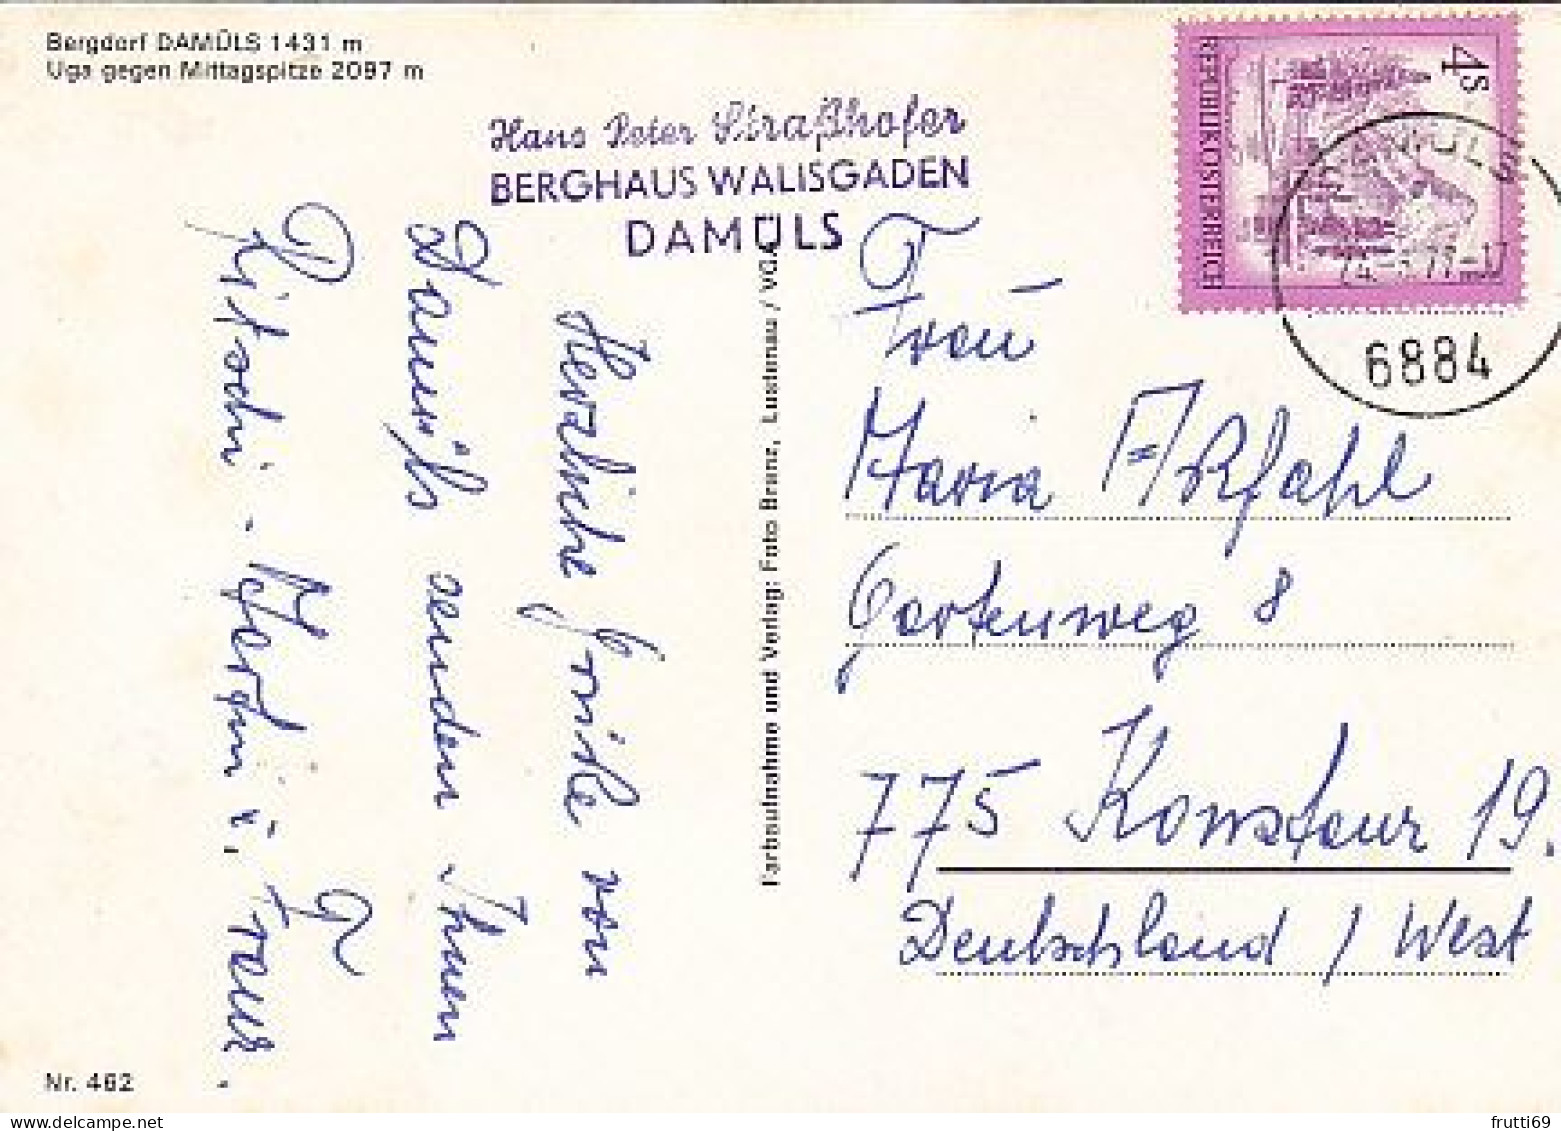 Bergdorf DAMÜLS 1431 m
Uga gegen Mittagspitze 2097 m
Hans Peter Straßhofer
BERGHAUS WALISGADEN
DAMÜLS
4 S
REPUBLIK ÖSTERREICH
DAMÜLS
77-17
6884
Herzliche Grüße von
Damüls senden Ihnen
Martin u. Frau
Farbaufnahme und Verlag: Foto Branz, Lustenau / VGA
Frau
Maria
Gartenweg 8
775 Konstanz 19.
Deutschland / West
Nr. 462
frutti69